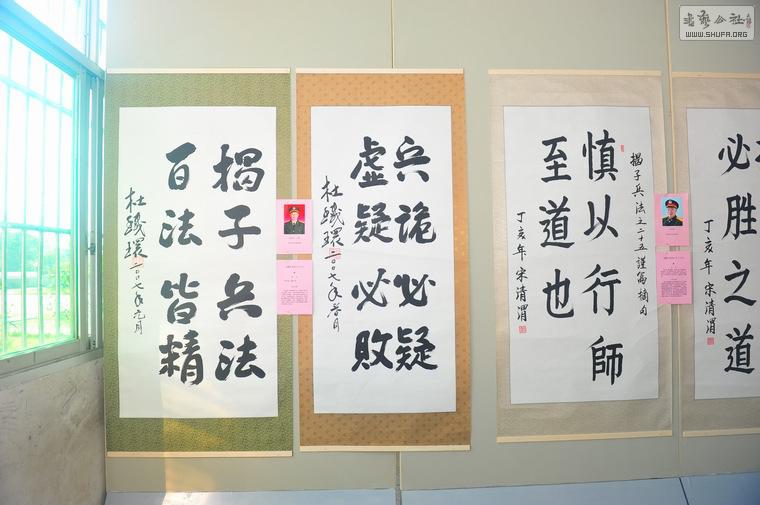 书艺公社
WWW.SHUFA.ORG
揭子兵法
百法皆精
杜鐵環二〇〇七年元月
兵詭必疑
虛疑必敗
杜鐵環二〇〇七年元月
揭子兵法之二十五謹篇摘句
慎以行師
至道也
丁亥年 宋清渭
必胜之道
丁亥年 宋清渭